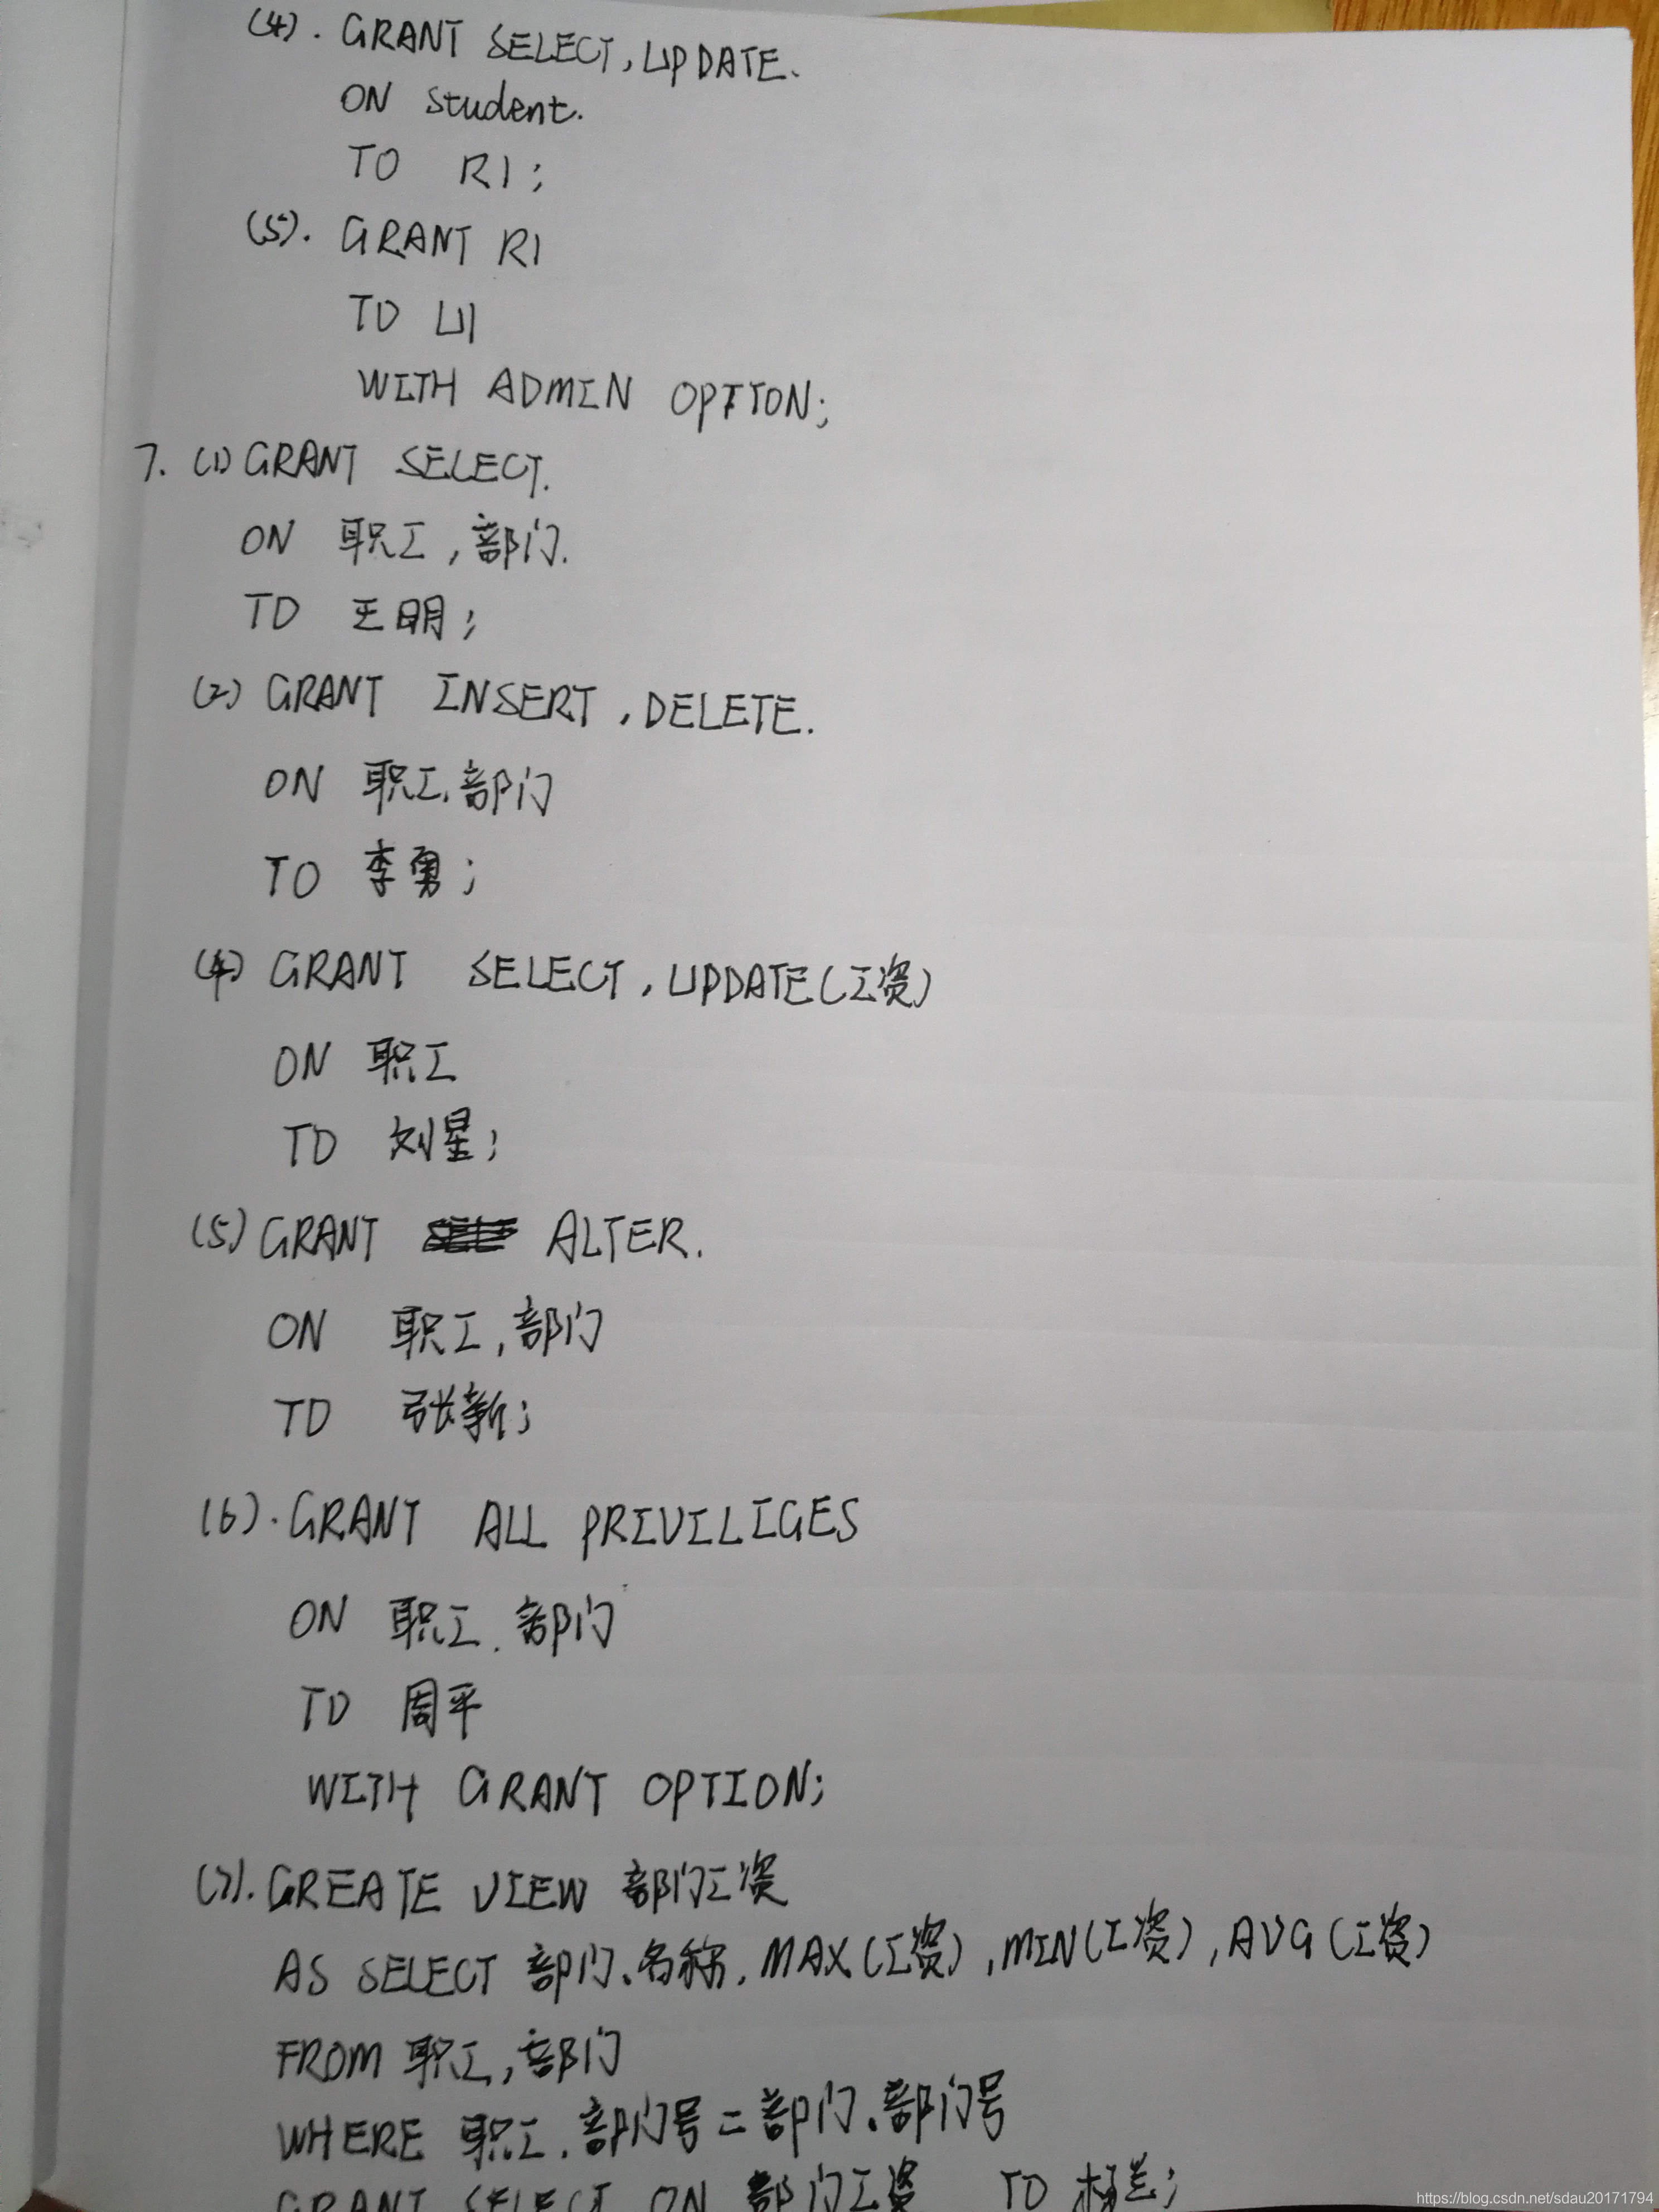 (4). GRANT SELECT, UPDATE.
ON student.
TO R1;
(5). GRANT R1
TO U1
WITH ADMIN OPTION;
7. (1) GRANT SELECT.
ON 职工,部门.
TO 王明;
(2) GRANT INSERT, DELETE.
ON 职工,部门
TO 李勇;
(4) GRANT SELECT, UPDATE(工资)
ON 职工
TO 刘星;
(5) GRANT ALTER.
ON 职工,部门
TO 张新;
(6). GRANT ALL PRIVILIGES
ON 职工,部门
TO 周平
WITH GRANT OPTION;
(7). CREATE VIEW 部门工资
AS SELECT 部门.名称, MAX(工资), MIN(工资), AVG(工资)
FROM 职工,部门
WHERE 职工.部门号=部门.部门号
GRANT SELECT ON 部门工资 TO 杨兰;
https://blog.csdn.net/sdau20171794